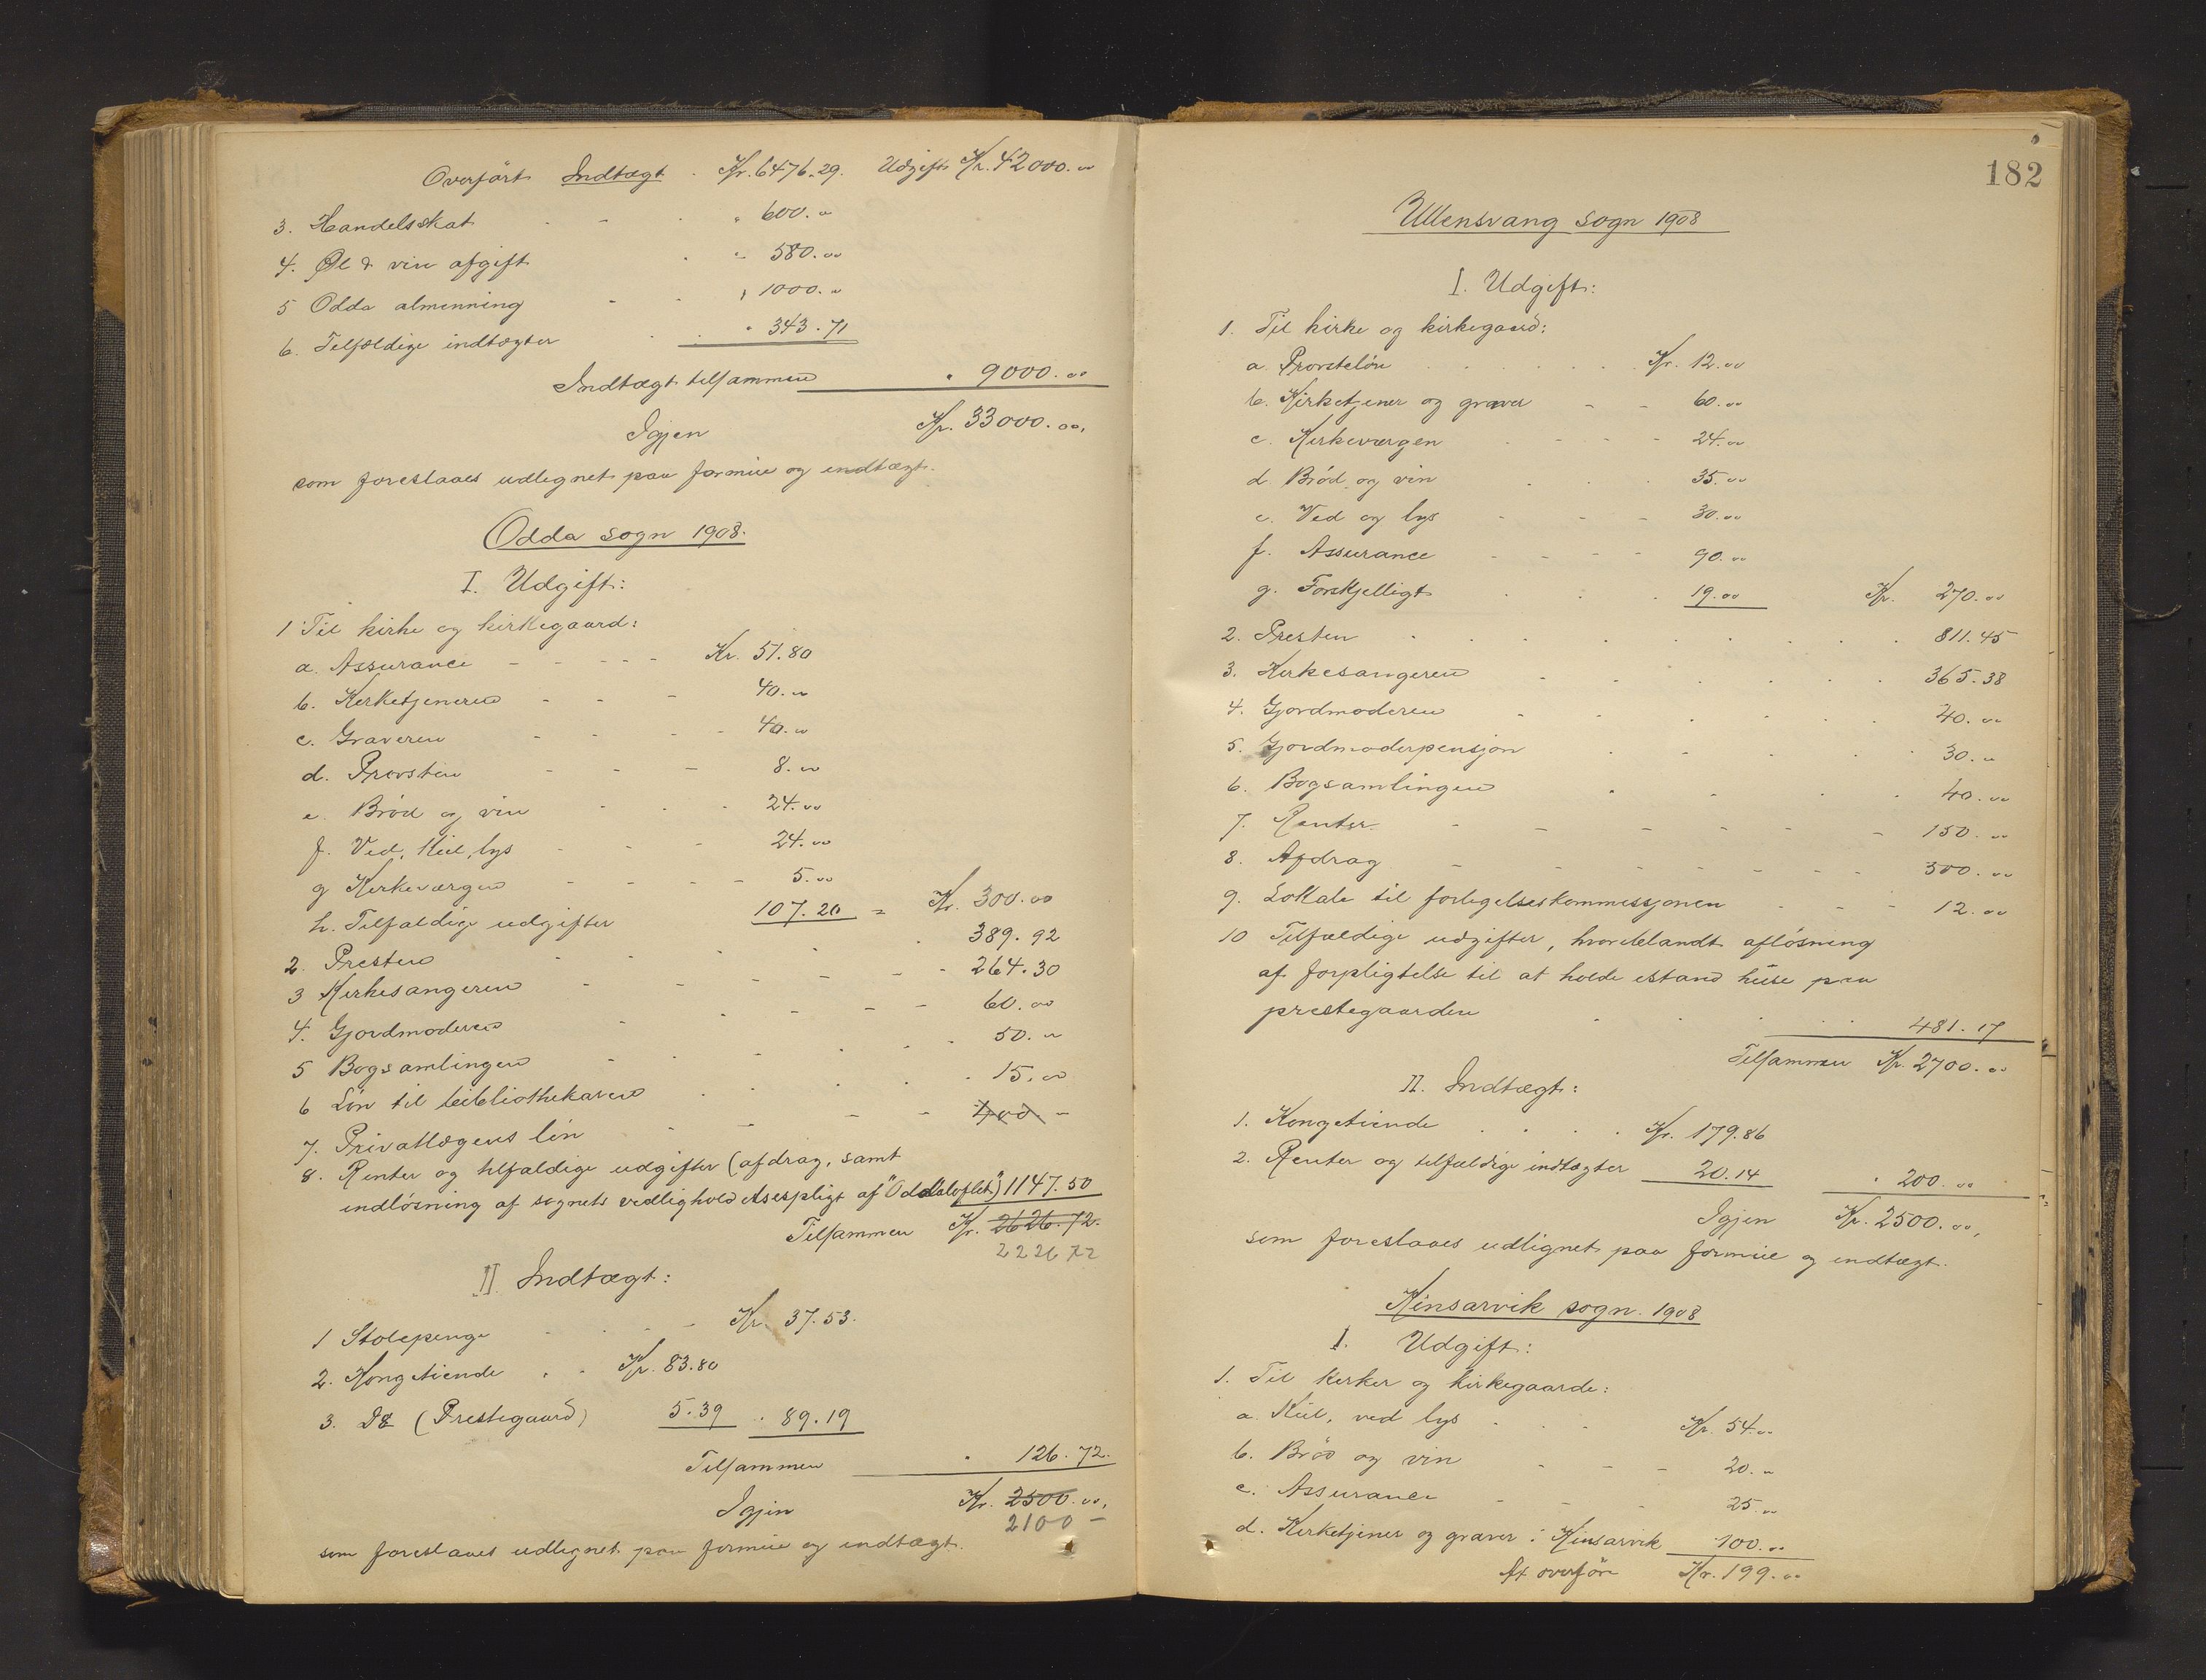 Overført Indtægt . Kr. 6476.29. Udgift Kr. 42000.00
3. Handelsskat - " 600.00
4. Øl & vin afgift " 580.00
5 Odda almenning - " 1000.00
6. Tilfældige indtægter " 343.71
Indtægt tilsammen " 9000.00
Igjen Kr. 33000.00,
som foreslaaes udlignet paa formue og indtægt.
Odda sogn 1908.
I. Udgift:
1 Til kirke og kirkegaard:
a. Assurance - - - - Kr. 51.80
b. Kirketjeneren - - - 40.00
c. Graveren - - - - 40.00
d. Provsten - - - 8.00
e. Brød og vin - - - 24.00
f. Ved, kul, lys - - - 24.00
g Kirkeværgen - - - - 5.00
h. Tilfældige udgifter 107.20 = Kr. 300.00
2. Presten - - - - 389.92
3 Kirkesangeren - - - - - 264.30
4. Gjordmoderen - - - - 60.00
5 Bogsamlingen - - - - 50.00
6 Løn til bibliothekaren - - - 15.00
7. Privatlægens løn - - - - 400. -
8. Renter og tilfældige udgifter (afdrag, samt
indløsning af sognets vedligholdelsespligt af "Oddaloftet") 1147.50
Tilsammen Kr. 2626.72.
2226 72
II. Indtægt:
1 Stolepenge - - - Kr. 37.53.
2. Kongetiende . . Kr. 83.80
3. Do (Prestegaard) 5.39 . 89.19
Tilsammen " 126.72.
Igjen Kr. 2500.00,
2100 -
som foreslaaes udlignet paa formue og indtægt.
182
Ullensvang sogn 1908
I. Udgift:
1. Til kirke og kirkegaard:
a. Provsteløn . . . . . . Kr. 12.00
b. Kirketjener og graver - - 60.00
c. Kirkeværgen - - - - 24.00
d. Brød og vin . . . 35.00
e. Ved og lys - - - 30.00
f. Assurance - - - - 90.00
g. Forskjelligt . . . 19.00 Kr. 270.00
2. Presten . . . . . . . . 811.45
3. Kirkesangeren . . . . . 365.38
4. Gjordmoderen . . . . . 40.00
5. Gjordmoderpensjon . . . . 30.00
6. Bogsamlingen . . . . 40.00
7. Renter - - - - - - 150.00
8. Afdrag - - - - - - 500.00
9. Lokale til forligelseskommissjonen - - - 12.00
10 Tilfældige udgifter, hvoriblandt afløsning
af forpligtelse til at holde istand huse paa
prestegaarden . . . . 481.17
Tilsammen Kr. 2700.00
II. Indtægt:
1. Kongetiende . . . . Kr. 179.86
2. Renter og tilfældige indtægter 20.14 " 200.00
Igjen Kr. 2500.00,
som foreslaaes udlignet paa formue og indtægt.
Kinsarvik sogn. 1908
I. Udgift:
1. Til kirker og kirkegaarde:
a. Kul, ved lys . . . Kr. 54.00
b. Brød og vin - - - 20.00
c. Assurance - - - 25.00
d. Kirketjener og graver i Kinsarvik 100.00
At overføre Kr. 199.00